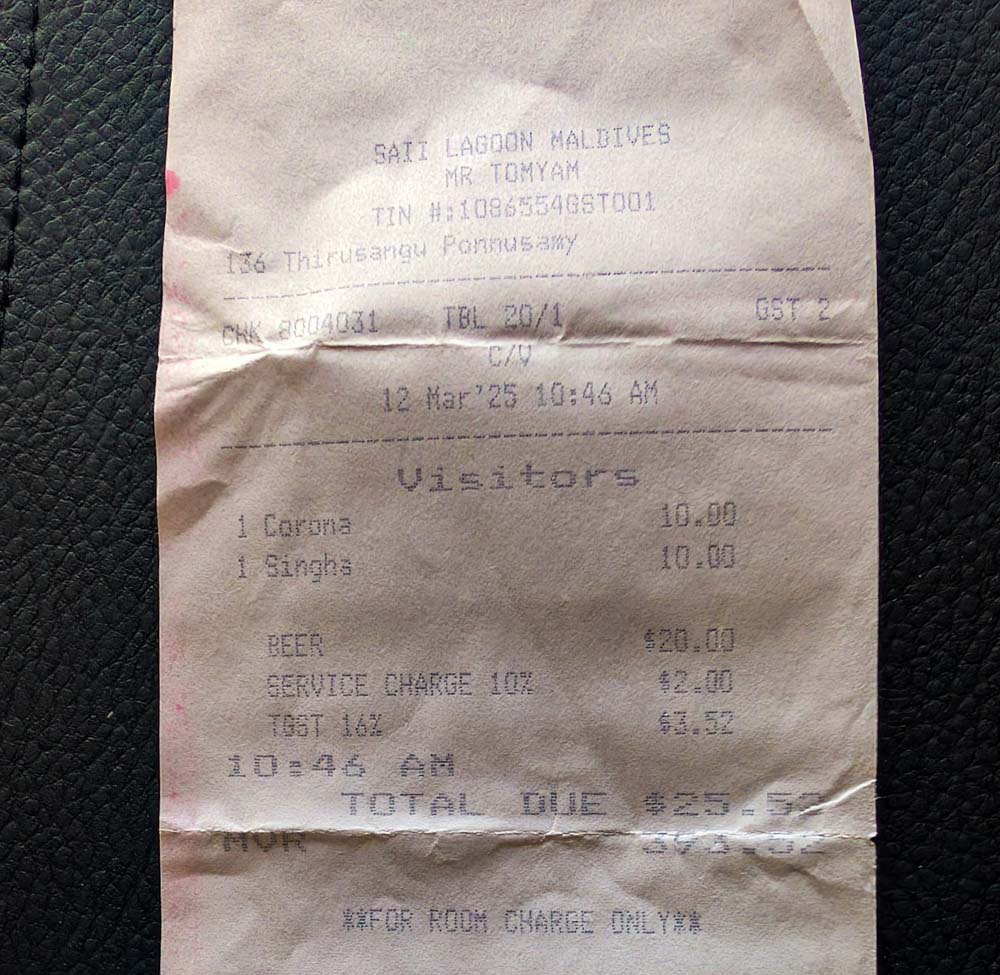 SAII LAGOON MALDIVES
MR TOMYAM
TIN #:1086554GST001
136 Thirusangu Ponnusamy
CHK 8004031 TBL 20/1 GST 2
C/V
12 Mar'25 10:46 AM
Visitors
1 Corona 10.00
1 Singha 10.00
BEER $20.00
SERVICE CHARGE 10% $2.00
TGST 16% $3.52
10:46 AM
TOTAL DUE $25.52
MVR
**FOR ROOM CHARGE ONLY**